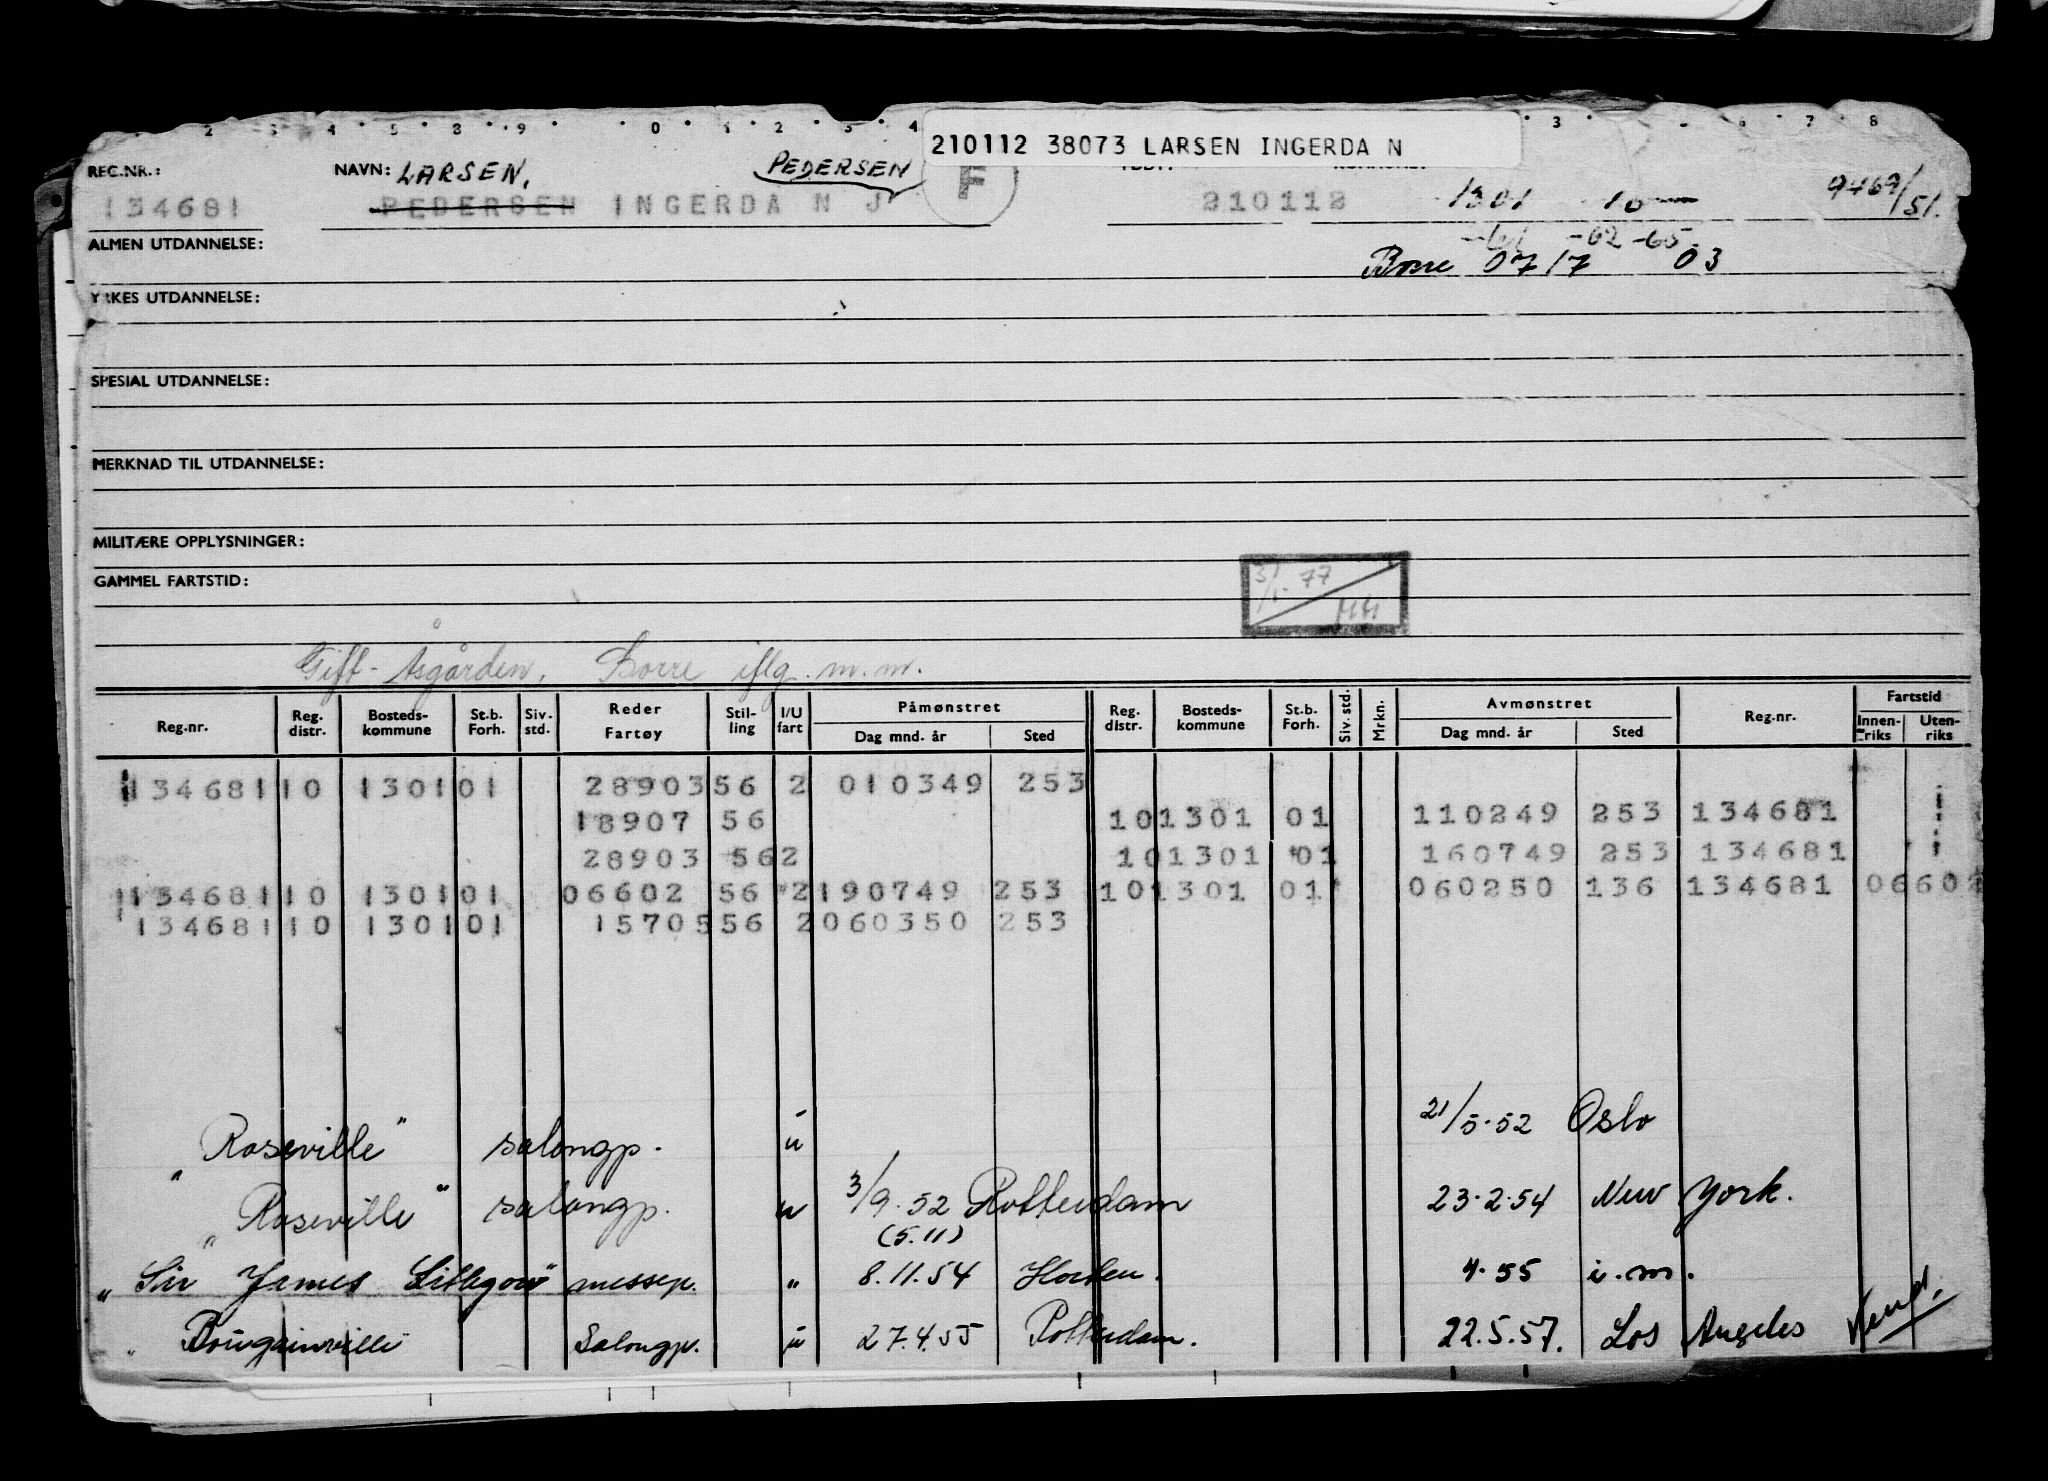 2 3 4 5 8 9 0 1 2 3 4 3 7 8
210112 38073 LARSEN INGERDA N
REG.NR.: NAVN: LARSEN, PEDERSEN F
134681 PEDERSEN INGERDA N J 210112 1301 10 9469/51.
ALMEN UTDANNELSE: -61 -62 -65
Borre 0717 03
YRKES UTDANNELSE:
SPESIAL UTDANNELSE:
MERKNAD TIL UTDANNELSE:
MILITÆRE OPPLYSNINGER:
GAMMEL FARTSTID:
77
Gift - Åsgården, Borre iflg. m.m.
Reg.nr. Reg. distr. Bosteds-kommune St.b. Forh. Siv. std. Reder Fartøy Stil-ling I/U fart Påmønstret Dag mnd. år Sted Reg. distr. Bosteds-kommune St.b. Forh. Siv. std. Mrkn. Avmønstret Dag mnd. år Sted Reg.nr. Fartstid Innen-riks Uten-riks
134681 10 1301 01 28903 56 2 010349 253
18907 56 10 1301 01 110249 253 134681
28903 56 2 10 1301 01 160749 253 134681
134681 10 1301 01 06602 56 2 190749 253 10 1301 01 060250 136 134681 06602
134681 10 1301 01 15705 56 2 060350 253
"Roseville" salongp. u 21/5.52 Oslo
"Roseville" salongp. u 3/9.52 Rotterdam 23.2.54 New York.
(5.11)
"Sir James Lithgow" messep. " 8.11.54 Horten. 4.55 i.m.
" Bougainville Salongp. u 27.4.55 Rotterdam. 22.5.57. Los Angeles